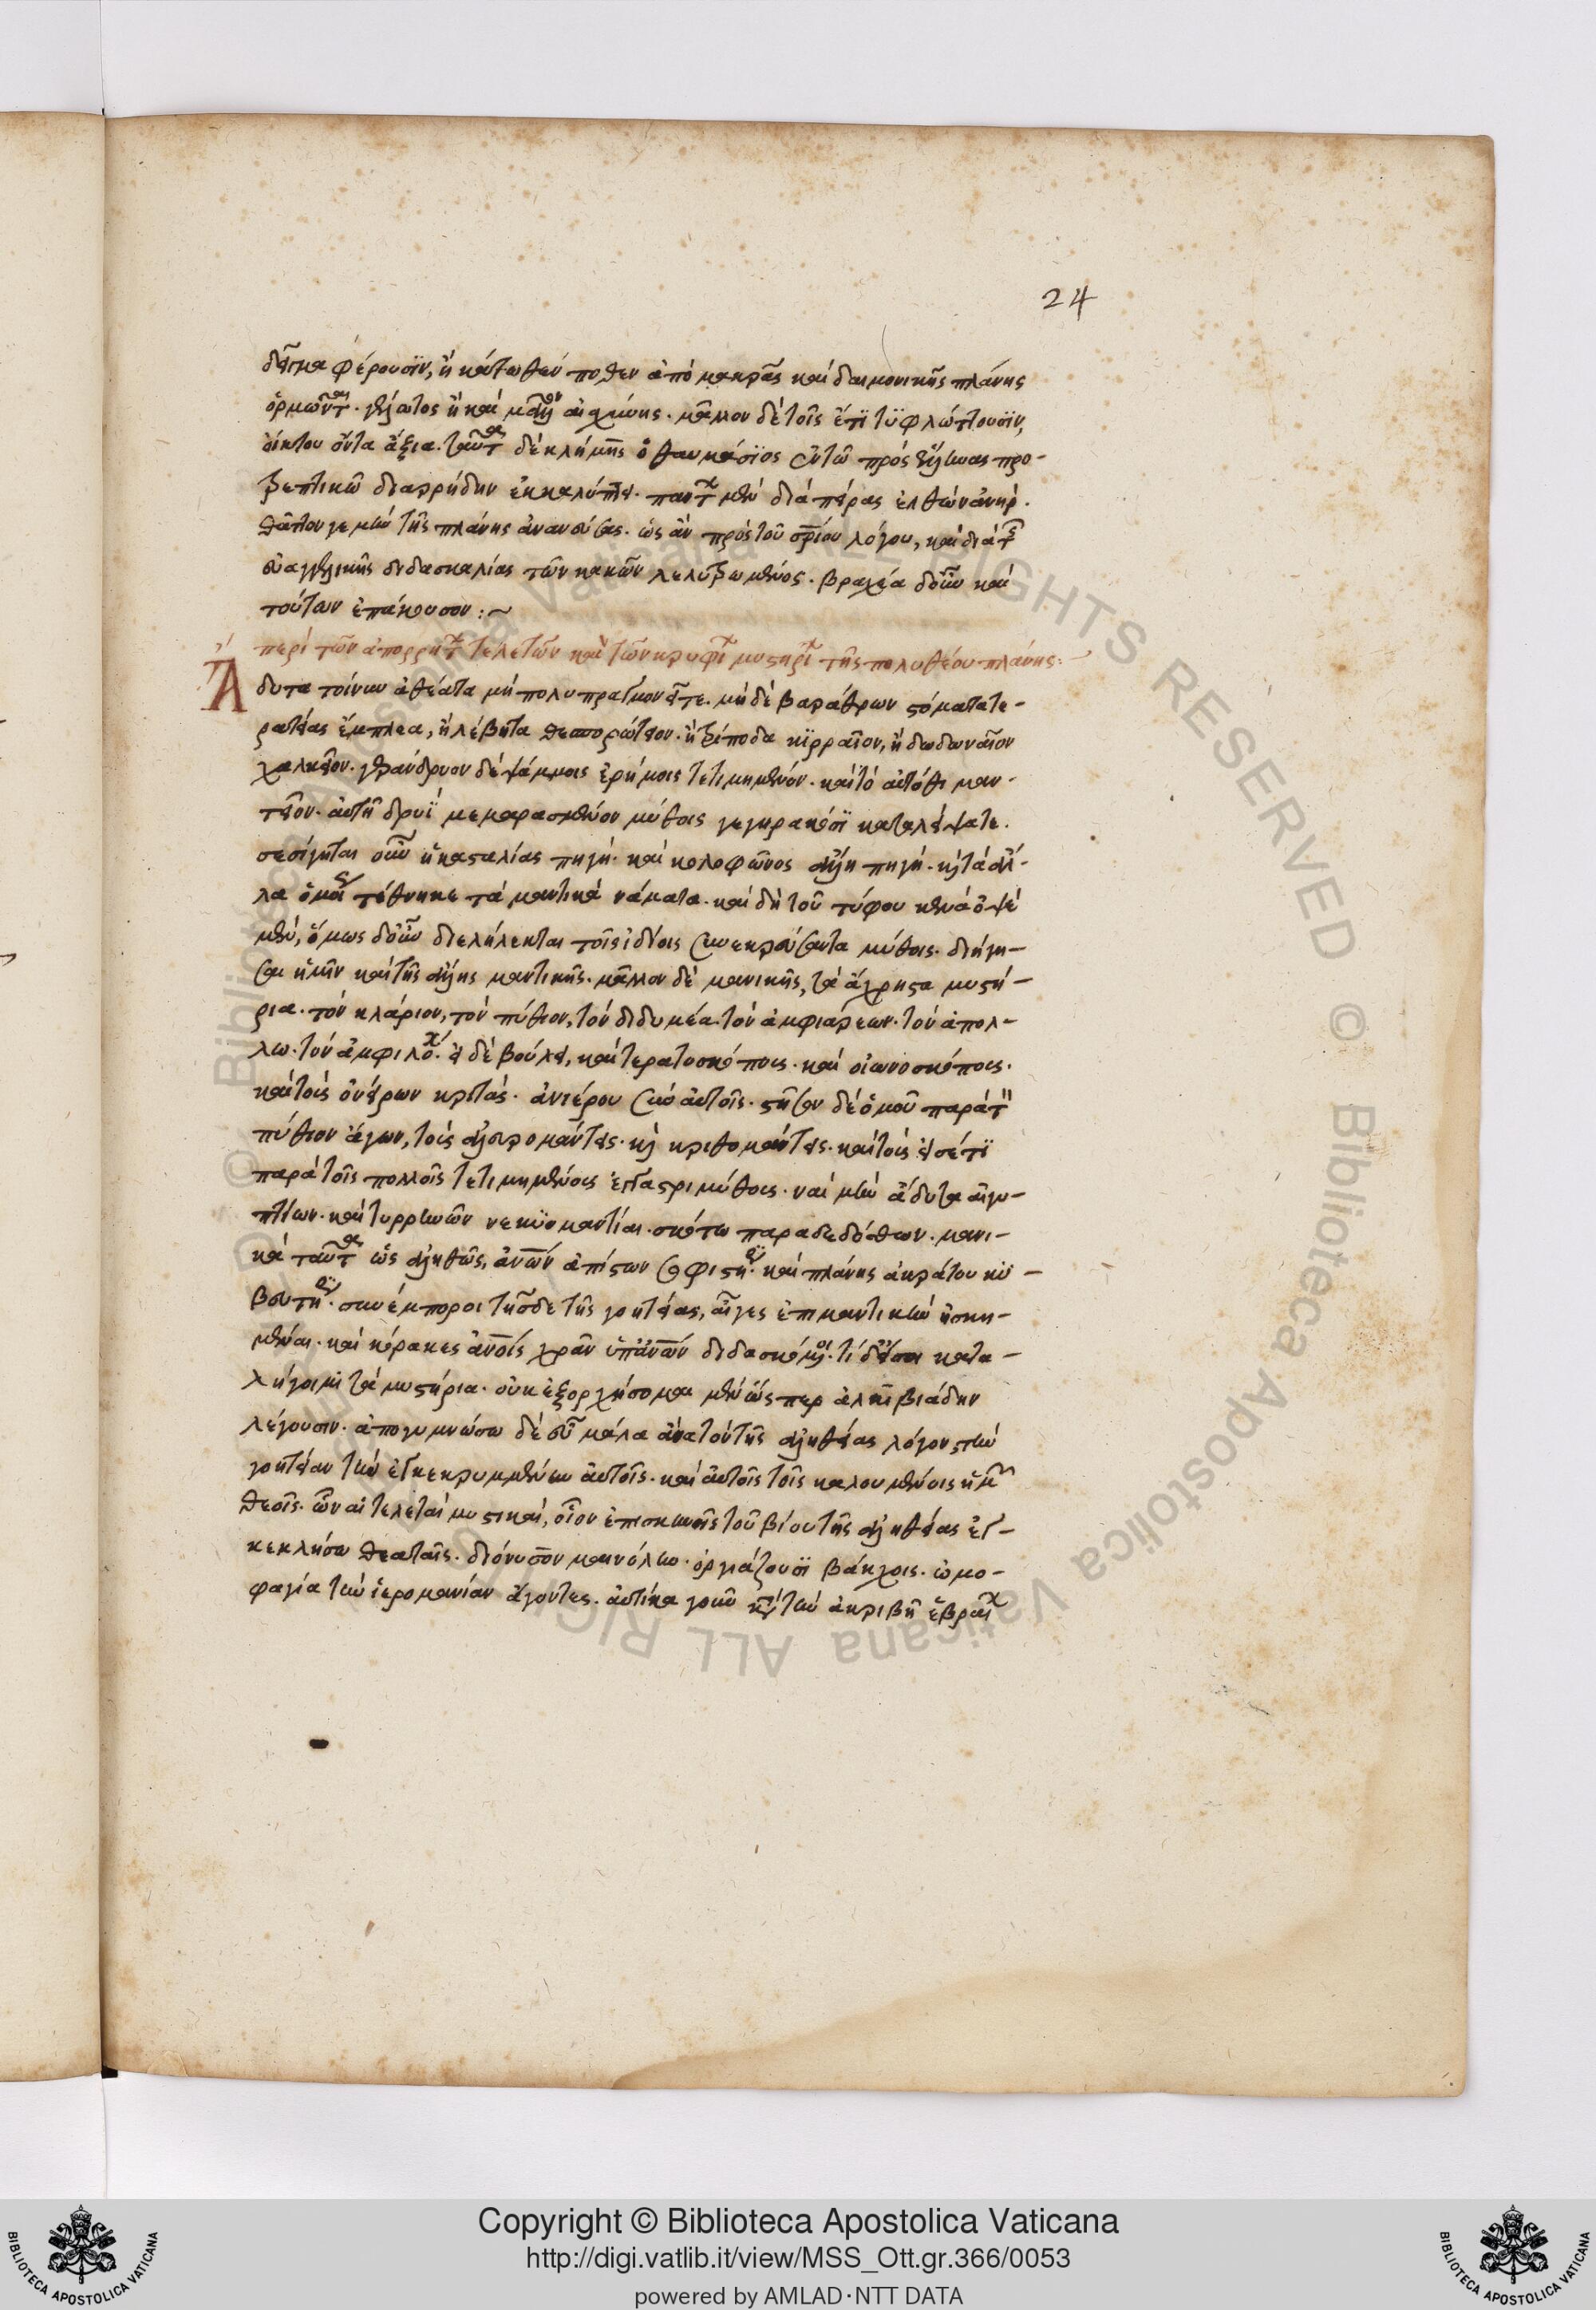 24
δεῖγμα φέρουσιν, ἢ κάτωθέν ποθεν ἀπὸ μακρᾶς καὶ δαιμονικῆς πλάνης
ὁρμῶντα. γέλωτος ἢ καὶ μᾶλλον αἰσχύνης. μᾶλλον δὲ τοῖς ἔτι τυφλώττουσιν,
οἴκτου ὄντα ἄξια. ταῦτα δὲ κλήμης ὁ θαυμάσιος ἐν τῷ πρὸς ἕλληνας προ-
τρεπτικῷ διαρρήδην ἐκκαλύπτει. πάντων μὲν διὰ πείρας ἐλθὼν ἀνήρ.
θᾶττόν γε μὴν τῆς πλάνης ἀνανεύσας. ὡς ἂν πρὸς τοῦ σωτηρίου λόγου, καὶ διὰ τῆς
εὐαγγελικῆς διδασκαλίας τῶν κακῶν λελυτρωμένος. βραχέα δ' οὖν καὶ
τούτων ἐπάκουσον:~
περὶ τῶν ἀπορρήτων τελετῶν καὶ τῶν κρυφίων μυστηρίων τῆς πολυθέου πλάνης:
Ἄδυτα τοίνυν ἀθέατα μὴ πολυπραγμονεῖτε. μὴ δὲ βαράθρων στόματα τε-
ρατείας ἔμπλεα, ἢ λέβητα θεσπρώτειον. ἢ τρίποδα κιρραῖον, ἢ δωδωναῖον
χαλκεῖον. γεράνδρυον δὲ ψάμμοις ἐρήμοις τετιμημένον. καὶ τὸ αὐτόθι μαν-
τεῖον. αὐτῇ δρυῒ μεμαρασμένον μύθοις γεγηρακόσι καταλείψατε.
σεσίγηται οὖν ἡ κασταλίας πηγή. καὶ κολοφῶνος ἄλλη πηγή. καὶ τὰ ἄλ-
λα ὁμοίως τέθνηκε τὰ μαντικὰ νάματα. καὶ δὴ τοῦ τύφου κενὰ ὀψὲ
μέν, ὅμως δ' οὖν διελήλεγκται τοῖς ἰδίοις συνεκρεύσαντα μύθοις. διήγη-
σαι ἡμῖν καὶ τῆς ἄλλης μαντικῆς. μᾶλλον δὲ μανικῆς, τὰ ἄχρηστα μυστή-
ρια. τὸν κλάριον, τὸν πύθιον, τὸν διδυμέα. τὸν ἀμφιάρεων. τὸν ἀπόλ-
λω. τὸν ἀμφίλοχον. εἰ δὲ βούλει, καὶ τερατοσκόπους. καὶ οἰωνοσκόπους.
καὶ τοὺς ὀνείρων κριτάς. ἀνιέρου σὺν αὐτοῖς. στῆσον δὲ ὁμοῦ παρὰ τὸν
πύθιον ἄγων, τοὺς ἀλευρομάντεις. καὶ κριθομάντεις. καὶ τοὺς εἰσέτι
παρὰ τοῖς πολλοῖς τετιμημένους ἐγγαστριμύθους. ναὶ μὴν ἄδυτα αἰγυ-
πτίων. καὶ τυρρηνῶν νεκυομαντίαι. σκότῳ παραδεδόσθων. μανι-
κὰ ταῦτα ὡς ἀληθῶς, ἀνθρώπων ἀπίστων σοφιστήρια. καὶ πλάνης ἀκράτου κυ-
βευτήρια. συνέμποροι τῆσδε τῆς γοητείας, αἶγες ἐπὶ μαντικὴν ἠσκη-
μέναι. καὶ κόρακες ἀνθρώποις χρᾶν ὑπ' ἀνθρώπων διδασκόμενοι. τί δ' εἴ σοι κατα-
λέγοιμι τὰ μυστήρια. οὐκ ἐξορχήσομαι μὲν ὥσπερ ἀλκιβιάδην
λέγουσιν. ἀπογυμνώσω δὲ εὖ μάλα ἀνὰ τὸν τῆς ἀληθείας λόγον, τὴν
γοητείαν τὴν ἐγκεκρυμμένην αὐτοῖς. καὶ αὐτοῖς τοῖς καλουμένοις ὑμῶν
θεοῖς. ὧν αἱ τελεταὶ μυστικαί, οἷον ἐπὶ σκηνῆς τοῦ βίου τῆς ἀληθείας ἐγ-
κεκλήσω θεαταῖς. διόνυσον μαινόλην. ὀργιάζουσι βάκχοις. ὠμο-
φαγίᾳ τὴν ἱερομανίαν ἄγοντες. αὐτίκα γοῦν κατὰ τὴν ἀκριβῆ ἑβραίων
Copyright © Biblioteca Apostolica Vaticana
http://digi.vatlib.it/view/MSS_Ott.gr.366/0053
powered by AMLAD·NTT DATA